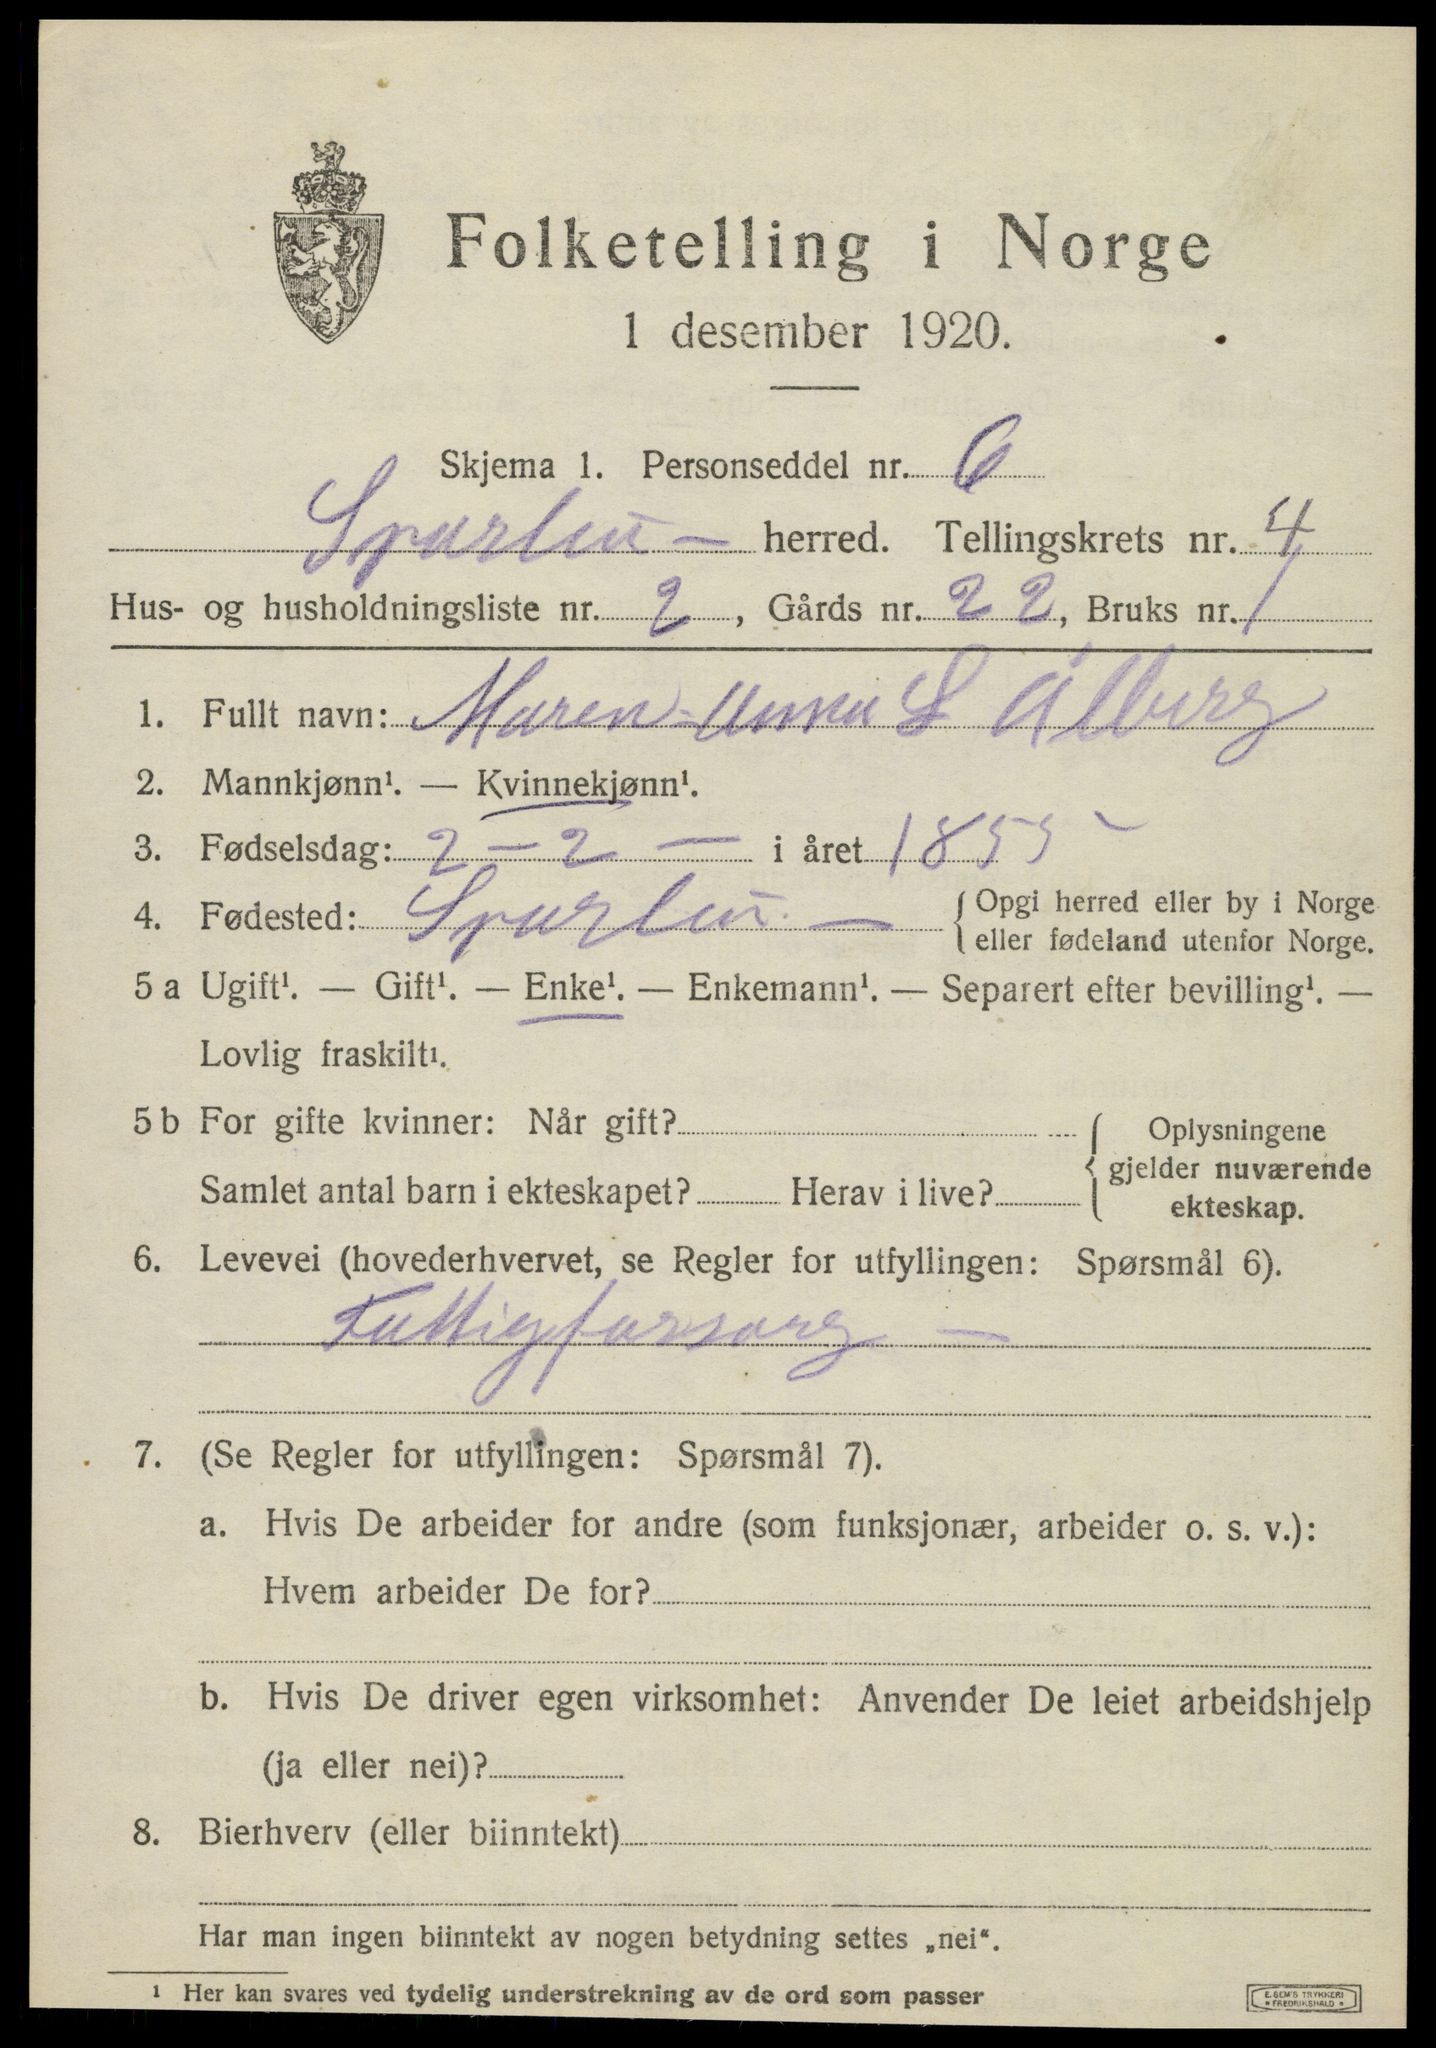 Folketelling i Norge
1 desember 1920.
Skjema 1. Personseddel nr. 6
Sparbu — herred. Tellingskrets nr. 4
Hus- og husholdningsliste nr. 2, Gårds nr. 22, Bruks nr. 1
1. Fullt navn: Maren Anna L Ålberg
2. Mannkjønn¹. — Kvinnekjønn¹.
3. Fødselsdag: 2 – 2 — i året 1855 –
4. Fødested: Sparbu. — { Opgi herred eller by i Norge
eller fødeland utenfor Norge.
5 a Ugift¹. — Gift¹. — Enke¹. — Enkemann¹. — Separert efter bevilling¹. —
Lovlig fraskilt¹.
5 b For gifte kvinner: Når gift? { Oplysningene
gjelder nuværende
Samlet antal barn i ekteskapet? Herav i live?
ekteskap.
6. Levevei (hovederhvervet, se Regler for utfyllingen: Spørsmål 6).
Fattigforsorg —
7. (Se Regler for utfyllingen: Spørsmål 7).
a. Hvis De arbeider for andre (som funksjonær, arbeider o. s. v.):
Hvem arbeider De for?
b. Hvis De driver egen virksomhet: Anvender De leiet arbeidshjelp
(ja eller nei)?
8. Bierhverv (eller biinntekt)
Har man ingen biinntekt av nogen betydning settes „nei“.
¹ Her kan svares ved tydelig understrekning av de ord som passer
E. SEM'S TRYKKERI
* FREDRIKSHALD *